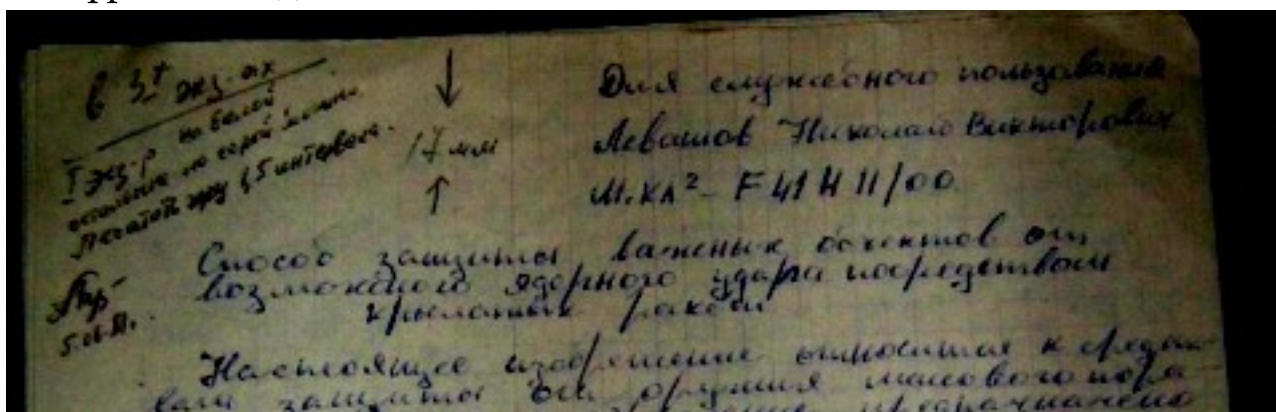 в 3х экз-ах
I экз-р на белой
остальные на серой
Печатать через 1,5 интервала.
5.06.81.
↓
17 мм
↑
Для служебного пользования
Левашов Николай Викторович
М.Кл² - F 41 H 11/00
Способ защиты важных объектов от
возможного ядерного удара посредством
крылатых ракет
Настоящее изобретение относится к средст-
вам защиты от оружия массового пора-
предназначено